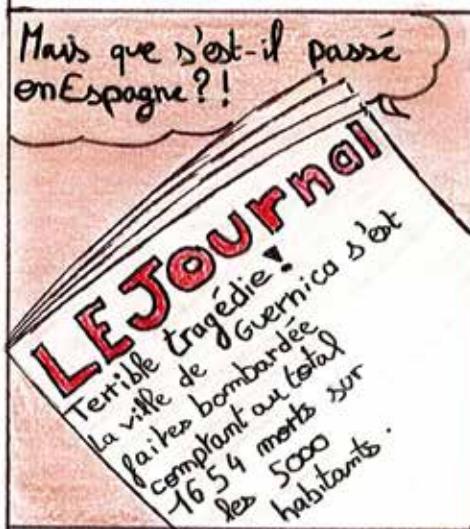 Mais que s'est-il passé
en Espagne?!
LE JOURNAL
Terrible tragédie!
La ville de Guernica s'est
faites bombardée
comptant au total
1654 morts sur
les 5000
habitants.